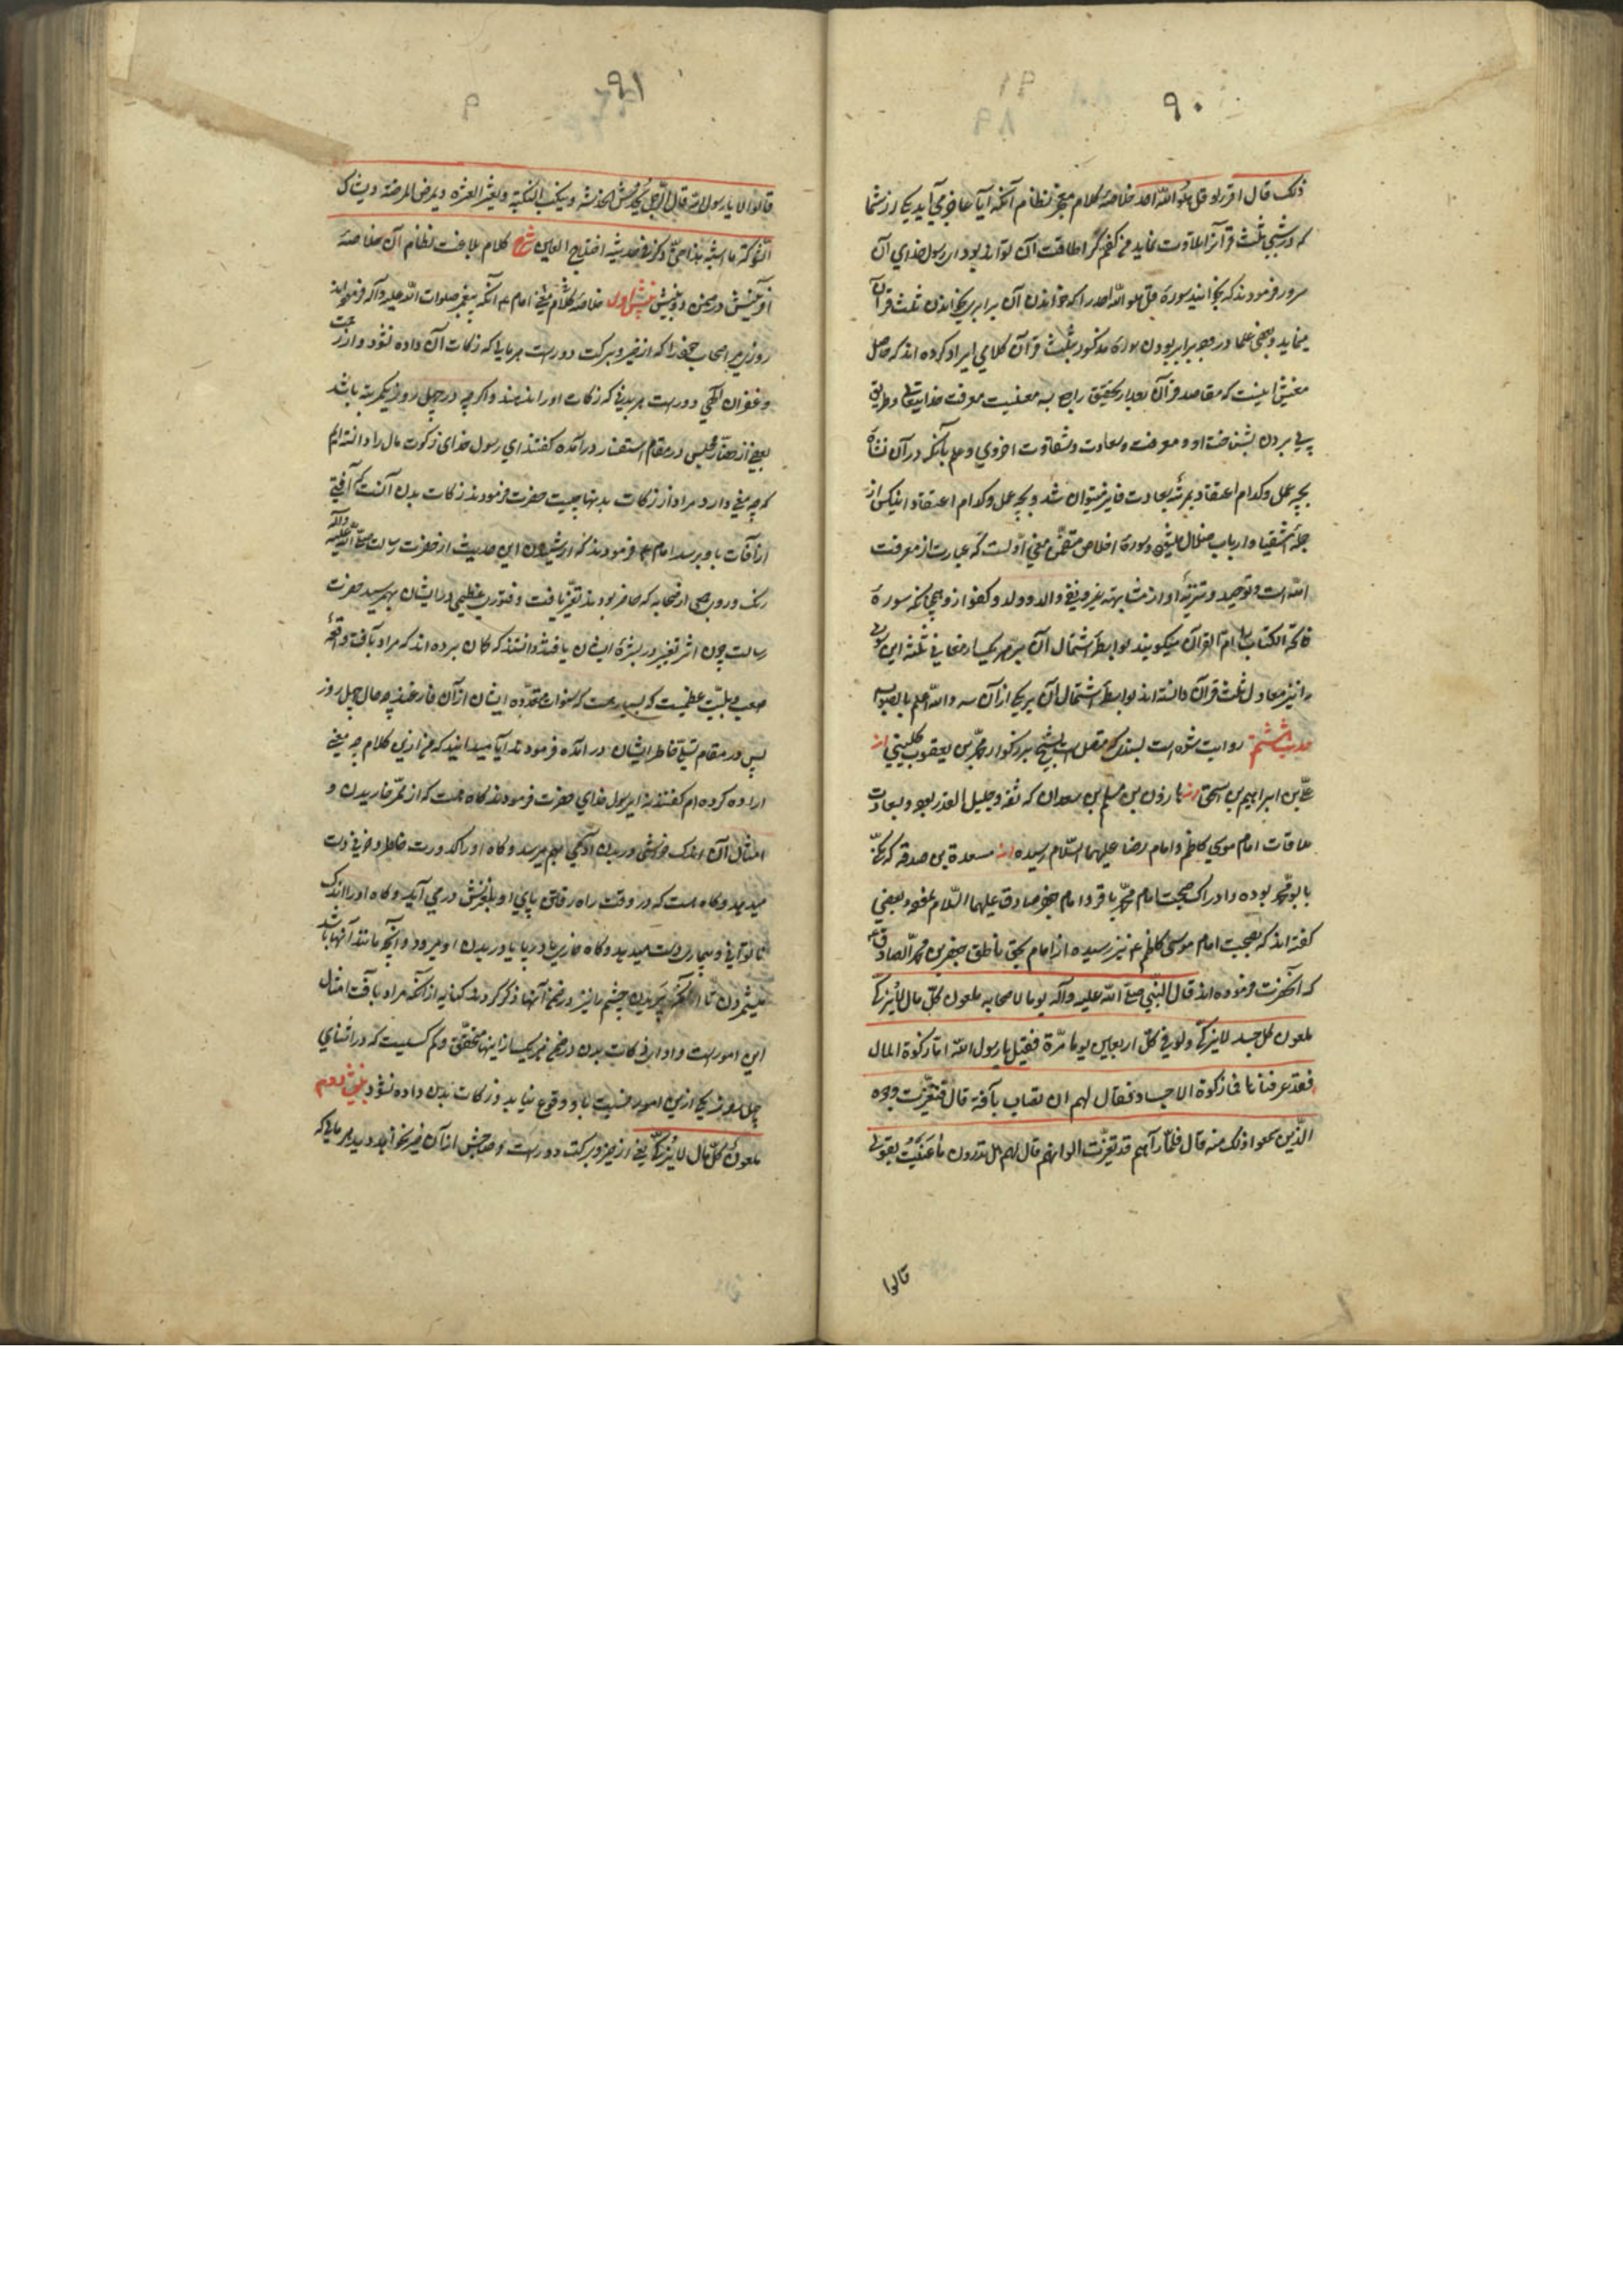 ۹۰
ذلک قال اقرؤا قل هو الله احد خلاصهٔ کلام معجز نظام آنکه آیا عاجز می آید یکی از شما
که در شبی ثلث قرآنرا تلاوت نماید من گفتم کرا طاقت آن تواند بود ای رسول خدای آن
سرور فرمودند که بخوانید سورهٔ قل هو الله احد را که خواندن آن برابر بخواندن ثلث قرآن
مینماید و بعضی علما در وجه برابر بودن سورهٔ مذکور بثلث قرآن کلامی ایراد کرده اند که حاصل
معنیش اینست که مقاصد قرآن بعد از تحقیق راجع بسه معنیست معرفت خدایتعالی و طریق
پی بردن بشناخت او و معرفت سعادت و شقاوت اخروی و علم بآنکه در آن نشأه
بچه عمل و کدام اعتقاد بمرتبهٔ سعادت فایز میتوان شد و بچه عمل و کدام اعتقاد اینکس از
جملهٔ اشقیا و ارباب ضلال میشود و سورهٔ اخلاص متضمن معنی اولست که عبارت از معرفت
الله است و توحید و تنزیه او از مشابهت بغیر و نفی والد و ولد و کفو ازو همچنانکه سورهٔ
فاتحة الکتاب را ام القرآن میگویند بواسطهٔ اشتمال آن بر هر یک از معانی ثلثه این سوره
را نیز معادل ثلث قرآن دانسته اند بواسطهٔ اشتمال آن بر یکی از آن سه والله اعلم بالصواب
حدیث ششم روایت شده است بسندی که متصل است بشیخ بزرگوار محمد بن یعقوب کلینی از
علی بن ابراهیم بن هاشم از هارون بن مسلم بن سعدان که ثقه و جلیل القدر بود و بسعادت
ملاقات امام موسی کاظم و امام رضا علیهما السلام رسیده از مسعدة بن صدقه که مکنی
بابو محمد بوده و ادراک صحبت امام محمد باقر و امام جعفر صادق علیهما السلام نموده و بعضی
گفته اند که بصحبت امام موسی کاظم ع نیز رسیده از امام بحق ناطق جعفر بن محمد الصادق ع
که آنحضرت فرموده اند قال النبی صلی الله علیه وآله یوما لاصحابه ملعون کل مال لایزکی
ملعون کل جسد لایزکی ولو فی کل اربعین یوما مرّة فقیل یا رسول الله اما زکوة المال
فقد عرفناها فما زکوة الاجساد فقال لهم ان تصاب بآفة قال فتغیّرت وجوه
الذین سمعوا ذلک منه قال فلما رآهم قد تغیّرت الوانهم قال لهم هل تدرون ما عَنَیتُ بقولی
قالوا
۹۱
قالوا لا یا رسول الله قال الرجل یُخدش الخدشة وینکب النکبة ویعثر العثرة ویمرض المرضة ویشاک
الشوکة وما اشبه هذا حتی ذکر فی حدیثه اختلاج العین شرح کلام بلاغت نظام آن خلاصهٔ
آفرینش در ضمن دو بینش بینش اول خلاصهٔ کلام معنی امام ع آنکه پیغمبر صلوات الله علیه وآله فرمودند
روزی بر اصحاب خود که از خیر و برکت دورست هر مالی که زکات آن داده نشود و از رحمت
و غفران الهی دورست هر بدنی که زکات او را ندهند و اگرچه در چهل روز یکمرتبه باشد
بعضی از حضار مجلس در مقام استفسار درآمده گفتند ای رسول خدای زکوت مال را دانسته ایم
که چه معنی دارد مراد از زکات بدنها چیست حضرت فرمودند زکات بدن آنست که آفتی
از آفات باو برسد امام ع فرمودند که از شنیدن این حدیث از حضرت رسالت صلی الله علیه وآله
رنگ و روی جمعی از صحابه که حاضر بودند تغیر یافت و فتوری عظیمی در ایشان بهم رسید حضرت
رسالت چون اثر تغیر در بشرهٔ ایشان یافتند دانستند که گمان برده اند که مراد بآفت واقعهٔ
صعب و بلیّت عظیمیست که بسیار هست که سنوات متعدده ایشان از آن فارغند چه جای چهل روز
پس در مقام تسلی خاطر ایشان درآمده فرمودند آیا میدانید که من ازین کلام چه معنی
اراده کرده ام گفتند نه ای رسول خدای حضرت فرمودند گاه هست که از ممرّ خاریدن و
امثال آن اندک خراشی در بدن آدمی بهم میرسد و گاه او را کدورت خاطر و حزنی دست
میدهد و گاه هست که در وقت راه رفتن پای او بلغزش در می آید و گاه او را اندک
ناتوانی و بیماری دست میدهد و گاه خاری بدست یا در پای او میرود و آنچه مانند آنها باشد
میشمردن تا آنکه پریدن چشم را نیز در ضمن آنها ذکر کردند کنایه از آنکه مراد بآفت امثال
این امور است و ادای زکات بدن در ضمن هر یک از اینها متحقق و کم کسیست که در اثنای
چهل روز یکی ازین امور نسبت باو وقوع نیابد و زکات بدن داده نشود بینش دوم
ملعون کل مال لا یُزکّی یعنی از خیر و برکت دورست و صاحبش از آن خیر نخواهد دید هر مالی که